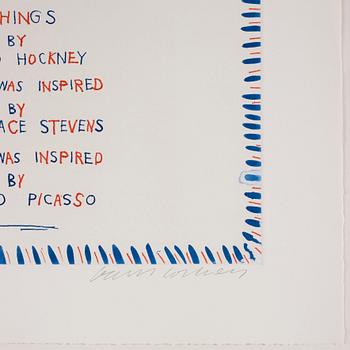 HINGS
BY
HOCKNEY
WAS INSPIRED
BY
ACE STEVENS
WAS INSPIRED
BY
O PICASSO